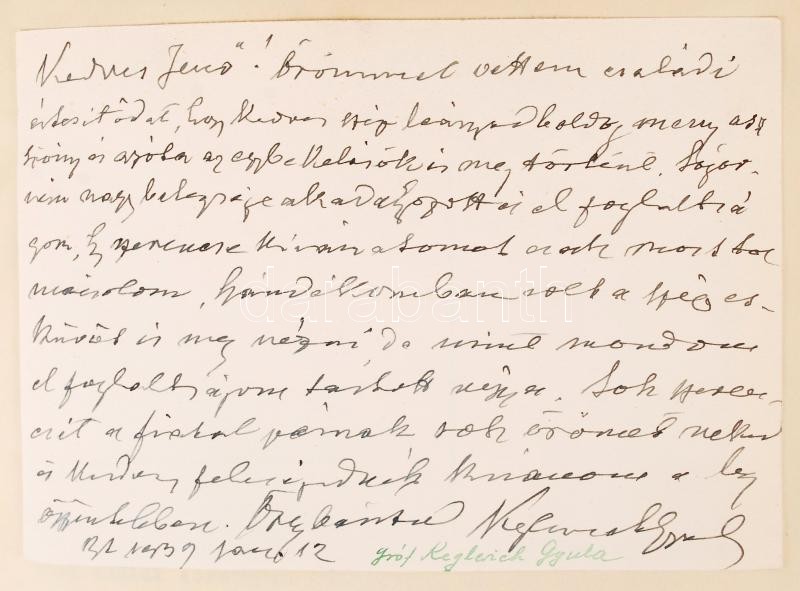 Kedves Jenő! Örömmel vettem családi
értesitődet, hogy kedves szép leányod boldog menyasz
szony és azóta az egybekelésök is meg történt. Sógor-
nöm nagy betegsége akadályozott és el foglaltsá
gom, hogy szerencse kivánatomat csak most tol
mácsolom, szándékomban volt a szép es-
küvöt is meg nézni de mint mondom
el foglaltságom tartott vissza. Sok szeren-
csét a fiatal párnak sok örömet neked
és kedves feleségednek kivánom a leg
öszintébben. Öreg barátod Keglevich Gyula
Bp 1939 jan. 12
gróf Keglevich Gyula
darabanth